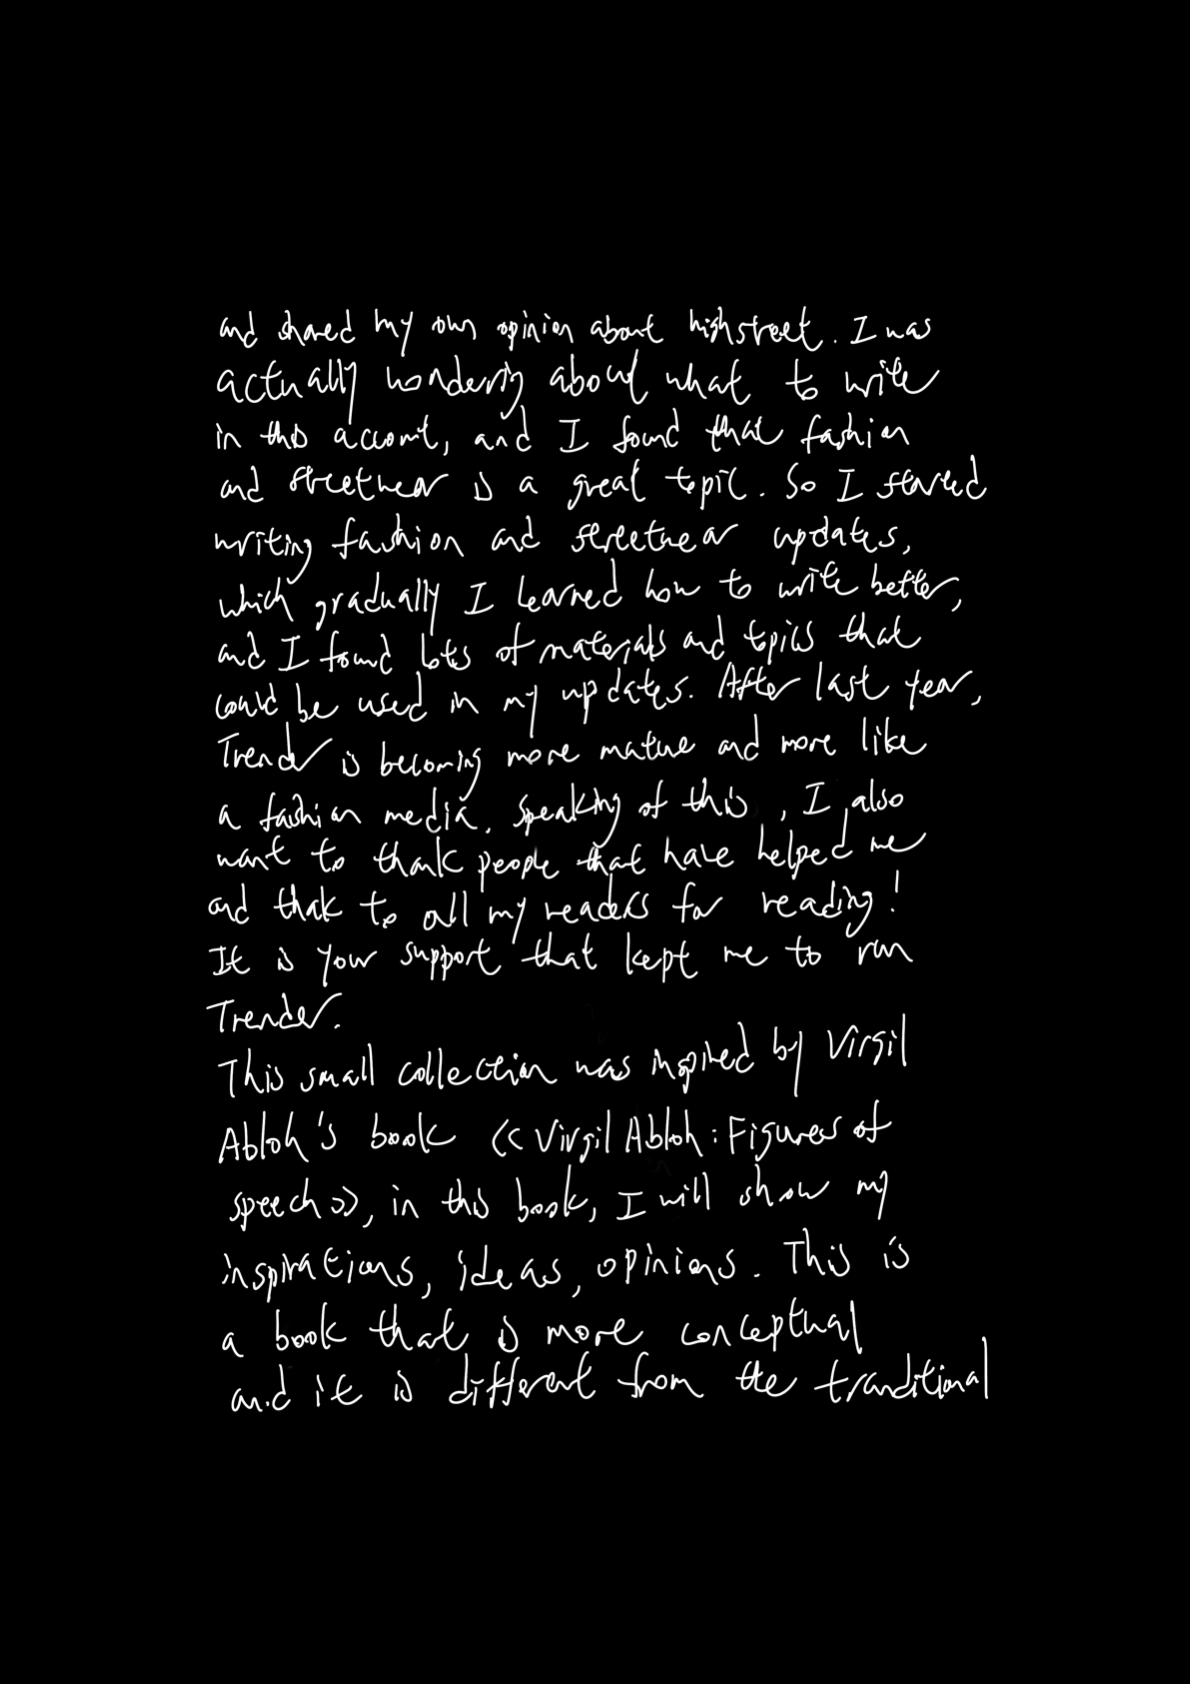 and shared my own opinion about highstreet. I was
actually wondering about what to write
in this account, and I found that fashion
and streetwear is a great topic. So I started
writing fashion and streetwear updates,
which gradually I learned how to write better,
and I found lots of materials and topics that
could be used in my updates. After last year,
Trender is becoming more mature and more like
a fashion media. Speaking of this, I also
want to thank people that have helped me
and thak to all my readers for reading!
It is your support that kept me to run
Trender.
This small collection was inspired by Virgil
Abloh's book 《Virgil Abloh: Figures of
speech》, in this book, I will show my
inspirations, ideas, opinions. This is
a book that is more conceptual
and it is different from the tranditional